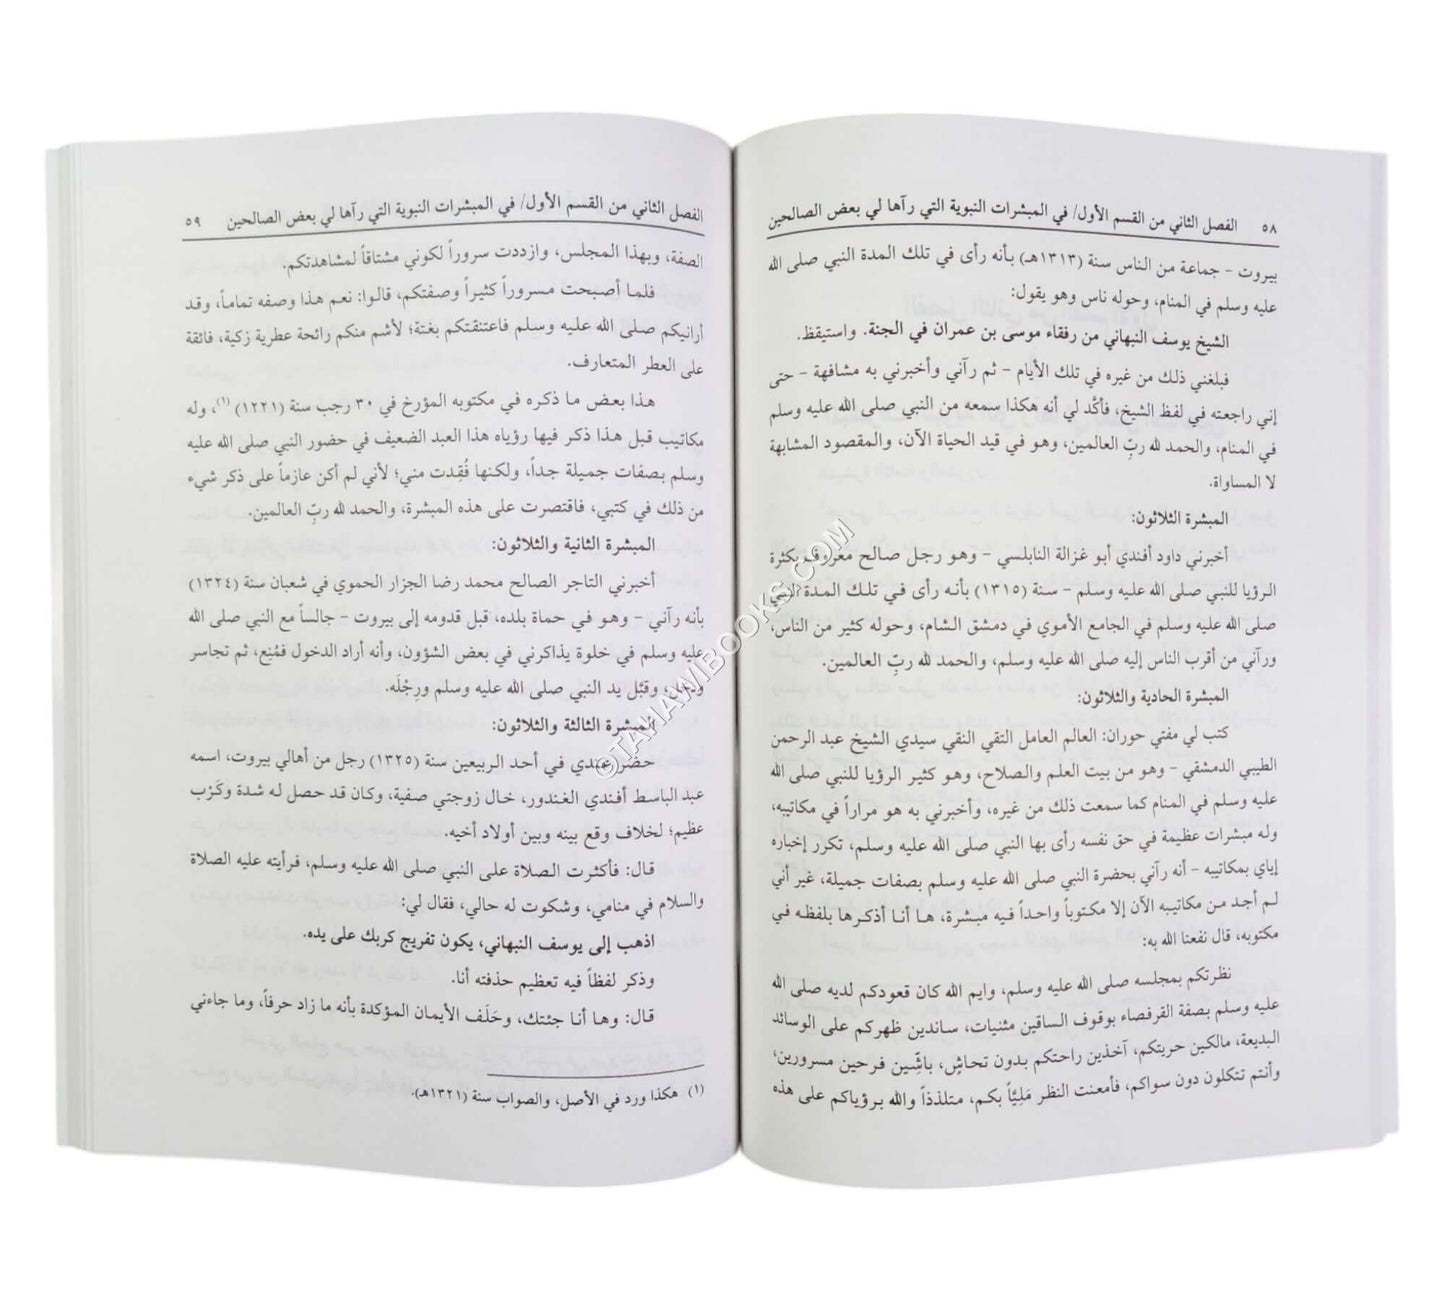 ٥٨ الفصل الثاني من القسم الأول/ في المبشرات النبوية التي رآها لي بعض الصالحين
بيروت - جماعة من الناس سنة (١٣١٣هـ) بأنه رأى في تلك المدة النبي صلى الله
عليه وسلم في المنام، وحوله ناس وهو يقول:
الشيخ يوسف النبهاني من رفقاء موسى بن عمران في الجنة. واستيقظ.
فبلغني ذلك من غيره في تلك الأيام - ثم رآني وأخبرني به مشافهة - حتى
إني راجعته في لفظ الشيخ، فأكَّد لي أنه هكذا سمعه من النبي صلى الله عليه وسلم
في المنام، والحمد لله ربِّ العالمين، وهو في قيد الحياة الآن، والمقصود المشابهة
لا المساواة.
المبشرة الثلاثون:
أخبرني داود أفندي أبو غزالة النابلسي - وهو رجل صالح معروف بكثرة
الرؤيا للنبي صلى الله عليه وسلم - سنة (١٣١٥) بأنه رأى في تلك المدة النبي
صلى الله عليه وسلم في الجامع الأموي في دمشق الشام، وحوله كثير من الناس،
ورآني من أقرب الناس إليه صلى الله عليه وسلم، والحمد لله ربِّ العالمين.
المبشرة الحادية والثلاثون:
كتب لي مفتي حوران: العالم العامل التقي النقي سيدي الشيخ عبد الرحمن
الطيبي الدمشقي - وهو من بيت العلم والصلاح، وهو كثير الرؤيا للنبي صلى الله
عليه وسلم في المنام كما سمعت ذلك من غيره، وأخبرني به هو مراراً في مكاتيبه،
وله مبشرات عظيمة في حق نفسه رأى بها النبي صلى الله عليه وسلم، تكرر إخباره
إياي بمكاتيبه - أنه رآني بحضرة النبي صلى الله عليه وسلم بصفات جميلة، غير أني
لم أجد من مكاتيبه الآن إلا مكتوباً واحداً فيه مبشرة، ها أنا أذكرها بلفظه في
مكتوبه، قال نفعنا الله به:
نظرتكم بمجلسه صلى الله عليه وسلم، وايم الله كان قعودكم لديه صلى الله
عليه وسلم بصفة القرفصاء بوقوف الساقين مثنيات، ساندين ظهركم على الوسائد
البديعة، مالكين حريتكم، آخذين راحتكم بدون تحاشٍ، باشِّين فرحين مسرورين،
وأنتم تتكلون دون سواكم، فأمعنت النظر مَلِيّاً بكم، متلذذاً والله برؤياكم على هذه
الفصل الثاني من القسم الأول/ في المبشرات النبوية التي رآها لي بعض الصالحين ٥٩
الصفة، وبهذا المجلس، وازددت سروراً لكوني مشتاقاً لمشاهدتكم.
فلما أصبحت مسروراً كثيراً وصفتكم، قالوا: نعم هذا وصفه تماماً، وقد
أرانيكم صلى الله عليه وسلم فاعتنقتكم بغتة؛ لأشم منكم رائحة عطرية زكية، فائقة
على العطر المتعارف.
هذا بعض ما ذكره في مكتوبه المؤرخ في ٣٠ رجب سنة (١٢٢١) (١)، وله
مكاتيب قبل هذا ذكر فيها رؤياه هذا العبد الضعيف في حضور النبي صلى الله عليه
وسلم بصفات جميلة جداً، ولكنها فُقِدت مني؛ لأني لم أكن عازماً على ذكر شيء
من ذلك في كتبي، فاقتصرت على هذه المبشرة، والحمد لله ربِّ العالمين.
المبشرة الثانية والثلاثون:
أخبرني التاجر الصالح محمد رضا الجزار الحموي في شعبان سنة (١٣٢٤)
بأنه رآني - وهو في حماة بلده، قبل قدومه إلى بيروت - جالساً مع النبي صلى الله
عليه وسلم في خلوة يذاكرني في بعض الشؤون، وأنه أراد الدخول فمُنِع، ثم تجاسر
ودخل، وقبَّل يد النبي صلى الله عليه وسلم ورِجْلَه.
المبشرة الثالثة والثلاثون:
حضر عندي في أحد الربيعين سنة (١٣٢٥) رجل من أهالي بيروت، اسمه
عبد الباسط أفندي الغندور، خال زوجتي صفية، وكان قد حصل له شدة وكَرْب
عظيم؛ لخلاف وقع بينه وبين أولاد أخيه.
قال: فأكثرت الصلاة على النبي صلى الله عليه وسلم، فرأيته عليه الصلاة
والسلام في منامي، وشكوت له حالي، فقال لي:
اذهب إلى يوسف النبهاني، يكون تفريج كربك على يده.
وذكر لفظاً فيه تعظيم حذفته أنا.
قال: وها أنا جئتك، وحَلَف الأيمان المؤكدة بأنه ما زاد حرفاً، وما جاءني
(١) هكذا ورد في الأصل، والصواب سنة (١٣٢١هـ).
©TAHAMIBOOKS.COM